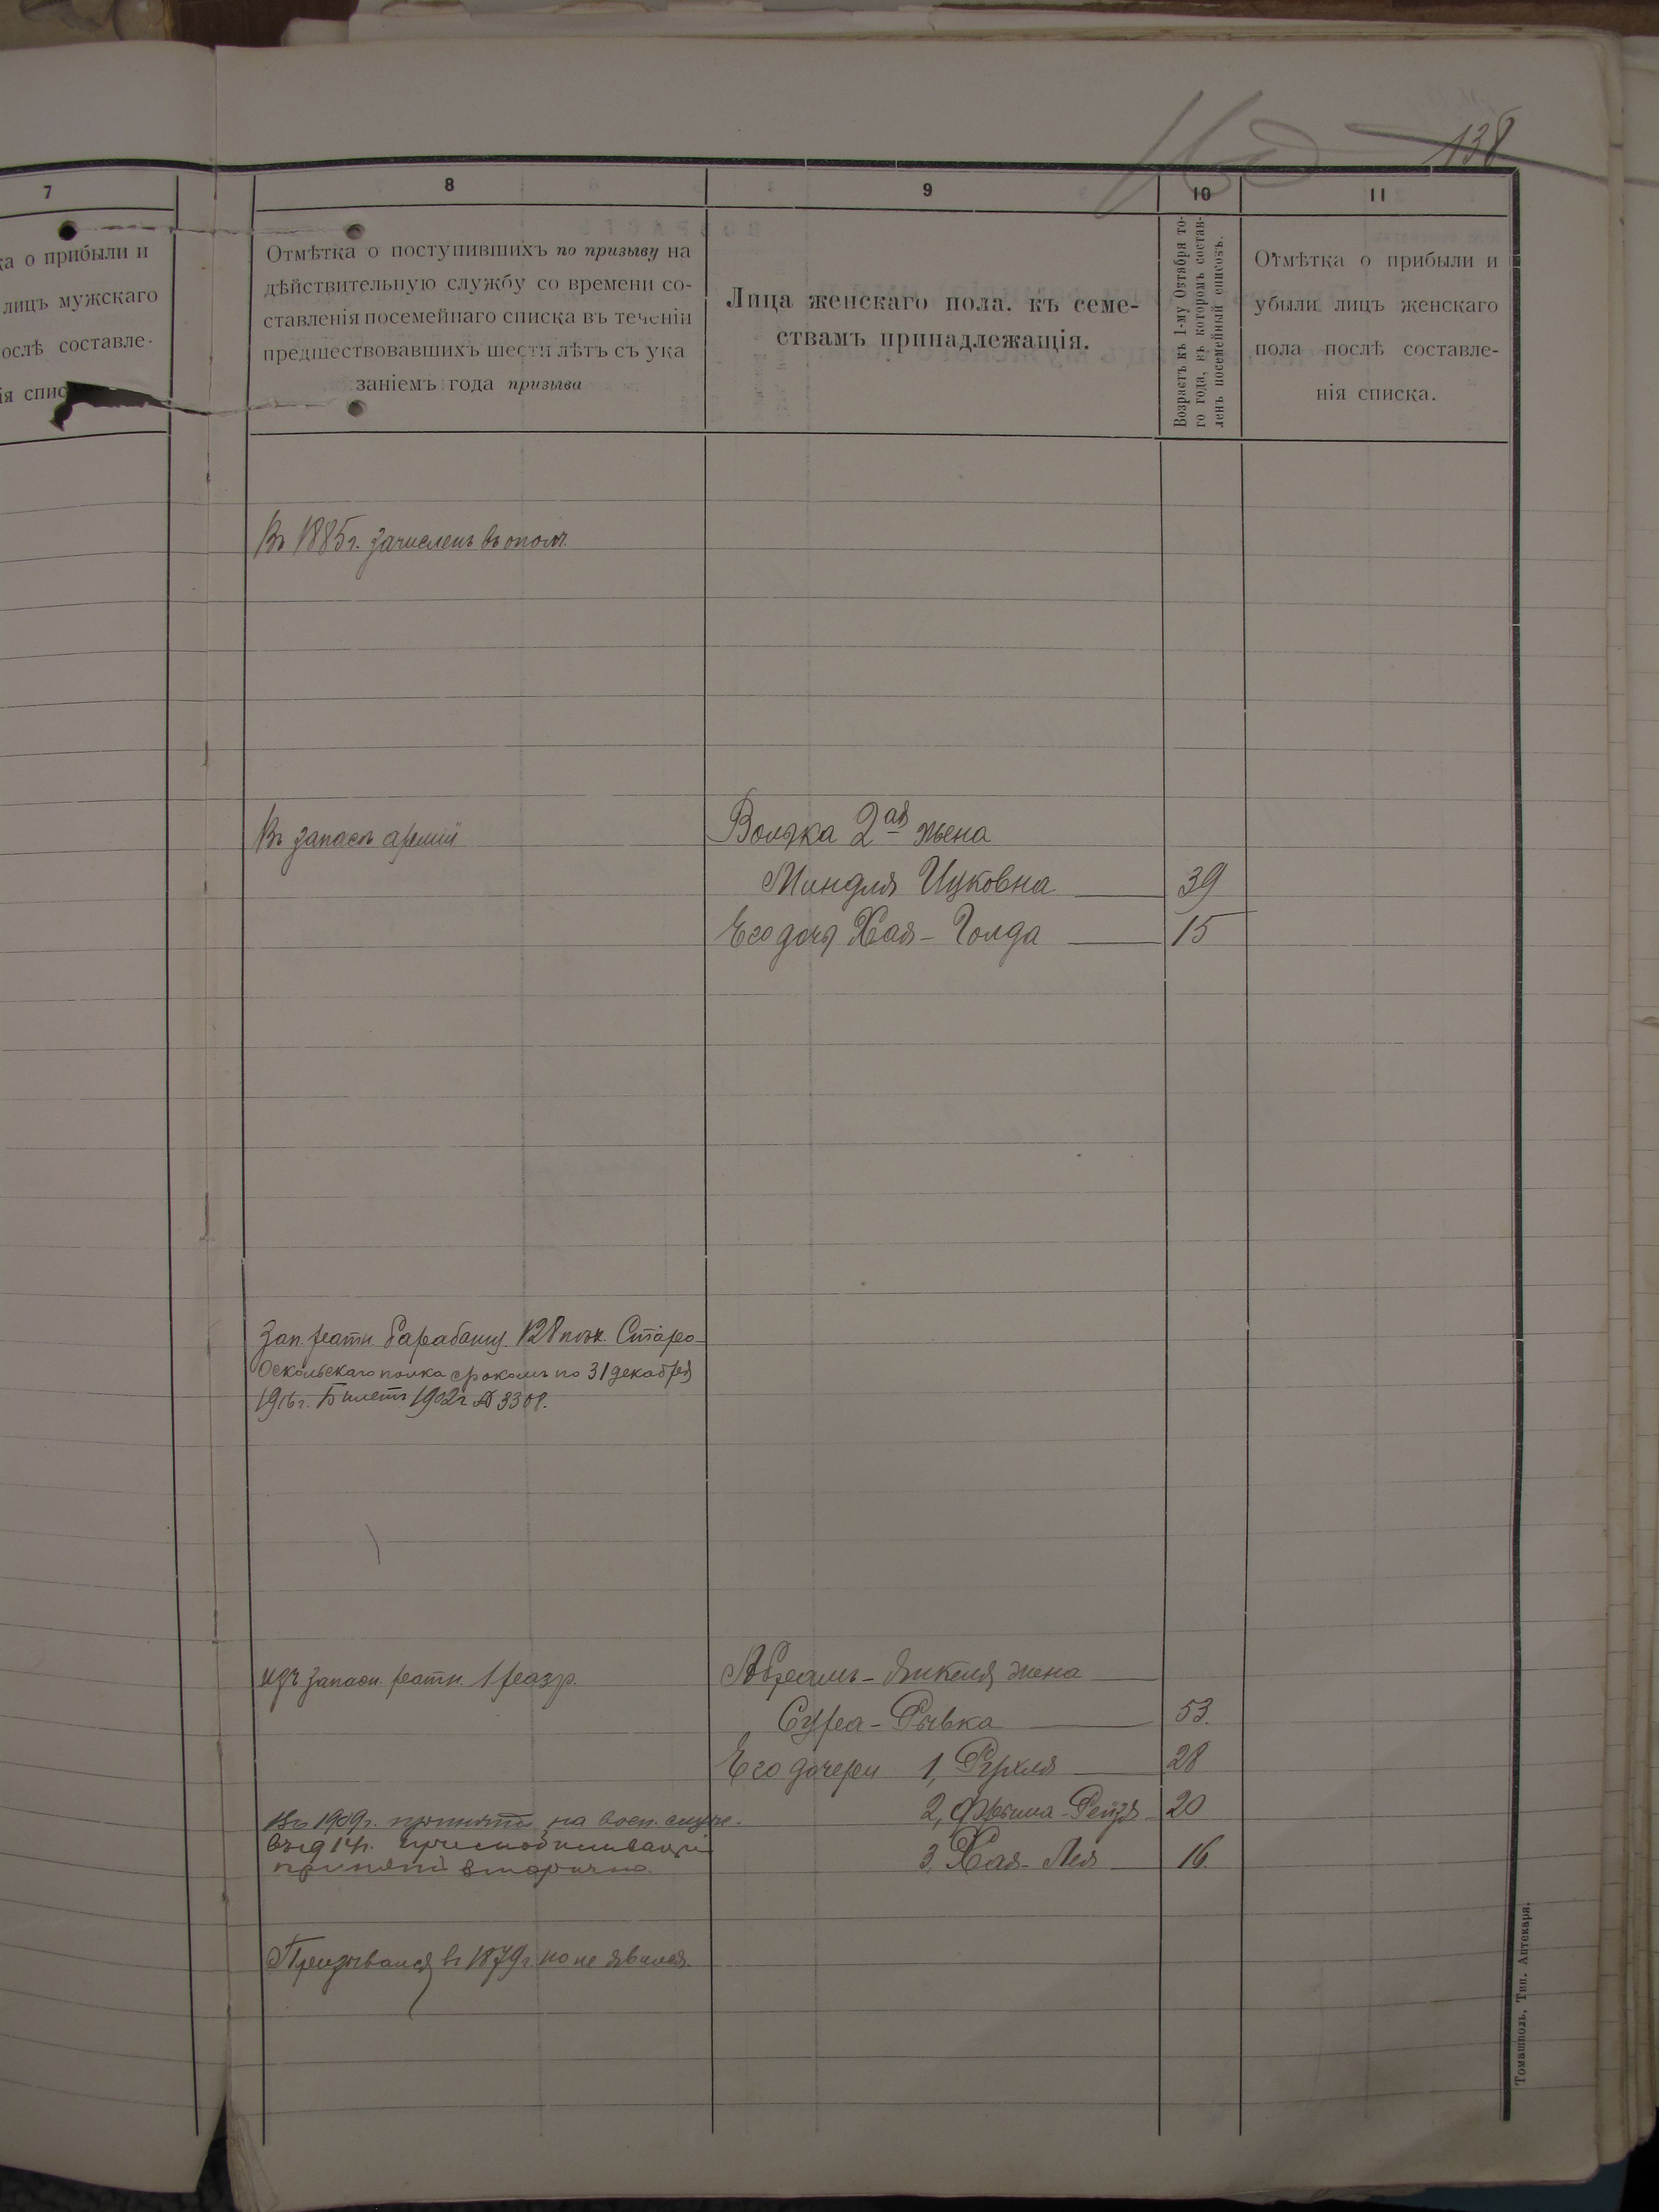 138
7
8
9
10
11
ка о прибыли и
лицъ мужскаго
ослѣ составле-
ія спис
Отмѣтка о поступившихъ по призыву на
дѣйствительную службу со времени со-
ставленія посемейнаго списка въ теченіи
предшествовавшихъ шести лѣтъ съ ука
заніемъ года призыва
Лица женскаго пола. къ семе-
ствамъ принадлежащія.
Возрастъ къ 1-му Октября то-
го года, въ которомъ состав-
ленъ посемейный списокъ.
Отмѣтка о прибыли и
убыли лицъ женскаго
пола послѣ составле-
нія списка.
Въ 1885 г. зачисленъ въ ополч.
Въ запасѣ арміи
Волька 2ая жена
Миндля Ицковна 39
Его дочь Хая-Голда 15
Зап. рядн. барабанщ. 128 пѣх. Старо-
Оскольскаго полка срокомъ по 31 декабря
1916 г. Билетъ 1902 г. № 3308.
запасн. 1 разр.
Абрамъ- жена
Сура-Рывка 53.
Его дочери 1, Рухля 28
2, Фрыма-Рейзя 20
3, Хая-Лея 16.
Въ 1909 г. принятъ на воен. служб.
принятъ вторично.
Призывался въ 1879 г. но не явился.
Томашполь, Тип. Аптекаря.